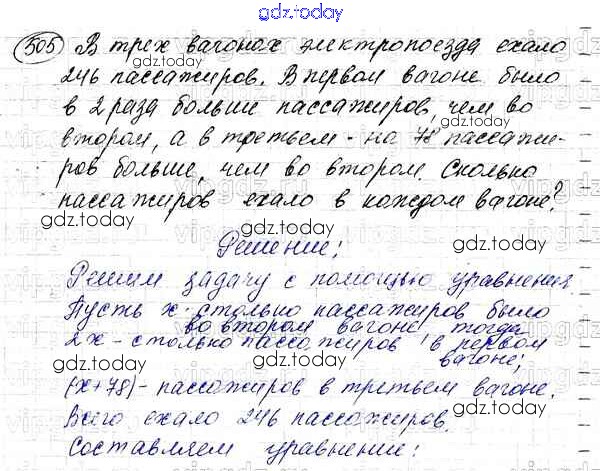 gdz.today
505 В трех вагонах электропоезда ехало
246 пассажиров. В первом вагоне было
в 2 раза больше пассажиров, чем во
втором, а в третьем - на 78 пассажи-
ров больше, чем во втором. Сколько
пассажиров ехало в каждом вагоне?
gdz.today
Решение:
Решим задачу с помощью уравнения.
Пусть x - столько пассажиров было
во втором вагоне тогда
2x - столько пассажиров в первом
вагоне;
(x+78) - пассажиров в третьем вагоне.
Всего ехало 246 пассажиров.
Составляем уравнение: